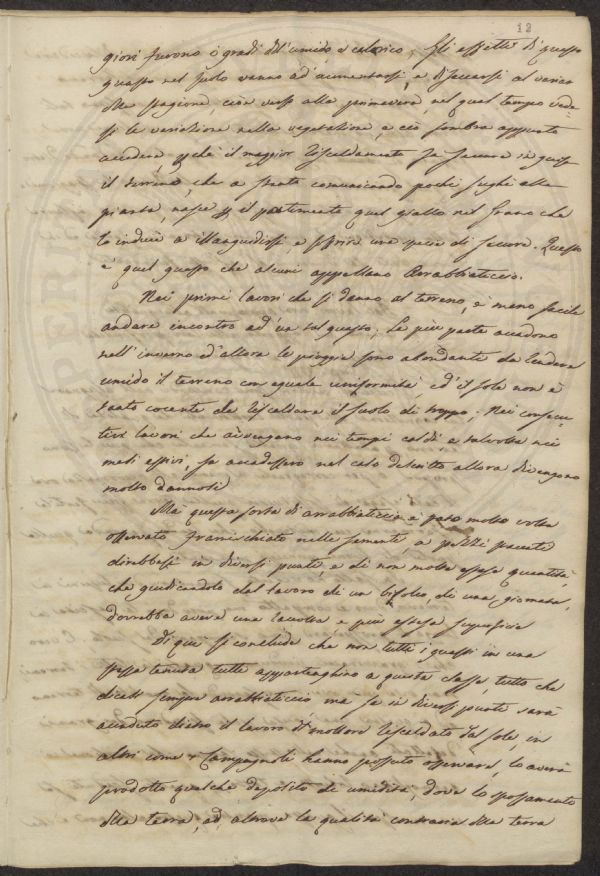 12
giori furono i gradi dell'umido e calorico. Gli effetti di questo
guasto nel suolo vanno ad aumentarsi, e di seccarsi al variar
della stagione, cioè verso alla primavera, nel qual tempo vede-
si la variazione nella vegetazione, e ciò sembra appunto
accadere, perchè il maggior riscaldamento fa seccare in quest
il terreno, che a stento comunicando pochi sughi alla
pianta, nasce per il patimento quel giallo nel grano che
lo induce a illanguidirsi, e soffrire una specie di seccore. Questo
è quel guasto che alcuni appellano Arrabbiaticcio.
Nei primi lavori che si danno al terreno, è meno facile
andare incontro ad un tal guasto; Le più parte accadono
nell'inverno ed allora le pioggie sono abondante da rendere
umido il terreno con eguale uniformità, ed il sole non è
tanto cocente da riscaldare il suolo di troppo; Nei consecu-
tivi lavori che avvengono nei tempi caldi, e talvolta nei
mesi estivi, se accadessero nel caso descritto allora divengono
molto dannosi
Ma questa sorta di arrabbiaticcio è stato molte volte
osservato framischiato nelle semente, a pezzi
direbbesi in diversi punti, e di non molta estesa quantità
che giudicandolo dal lavoro di un bifolco, di una giornata,
dovrebbe avere una lavorata e più estesa superficie
Di qui si conclude che non tutti i guasti in una
stessa tenuta tutti appartenghino a questa classe, tutto che
dicesi sempre arrabbiaticcio ma se in diversi punti sarà
accaduto dietro il lavoro riscaldato dal sole, in
altri come i Campagnoli hanno possuto osservare, lo avrà
prodotto qualche deposito di umidità, dove lo spossamento
della terra, ed altrove la qualità contraria della terra